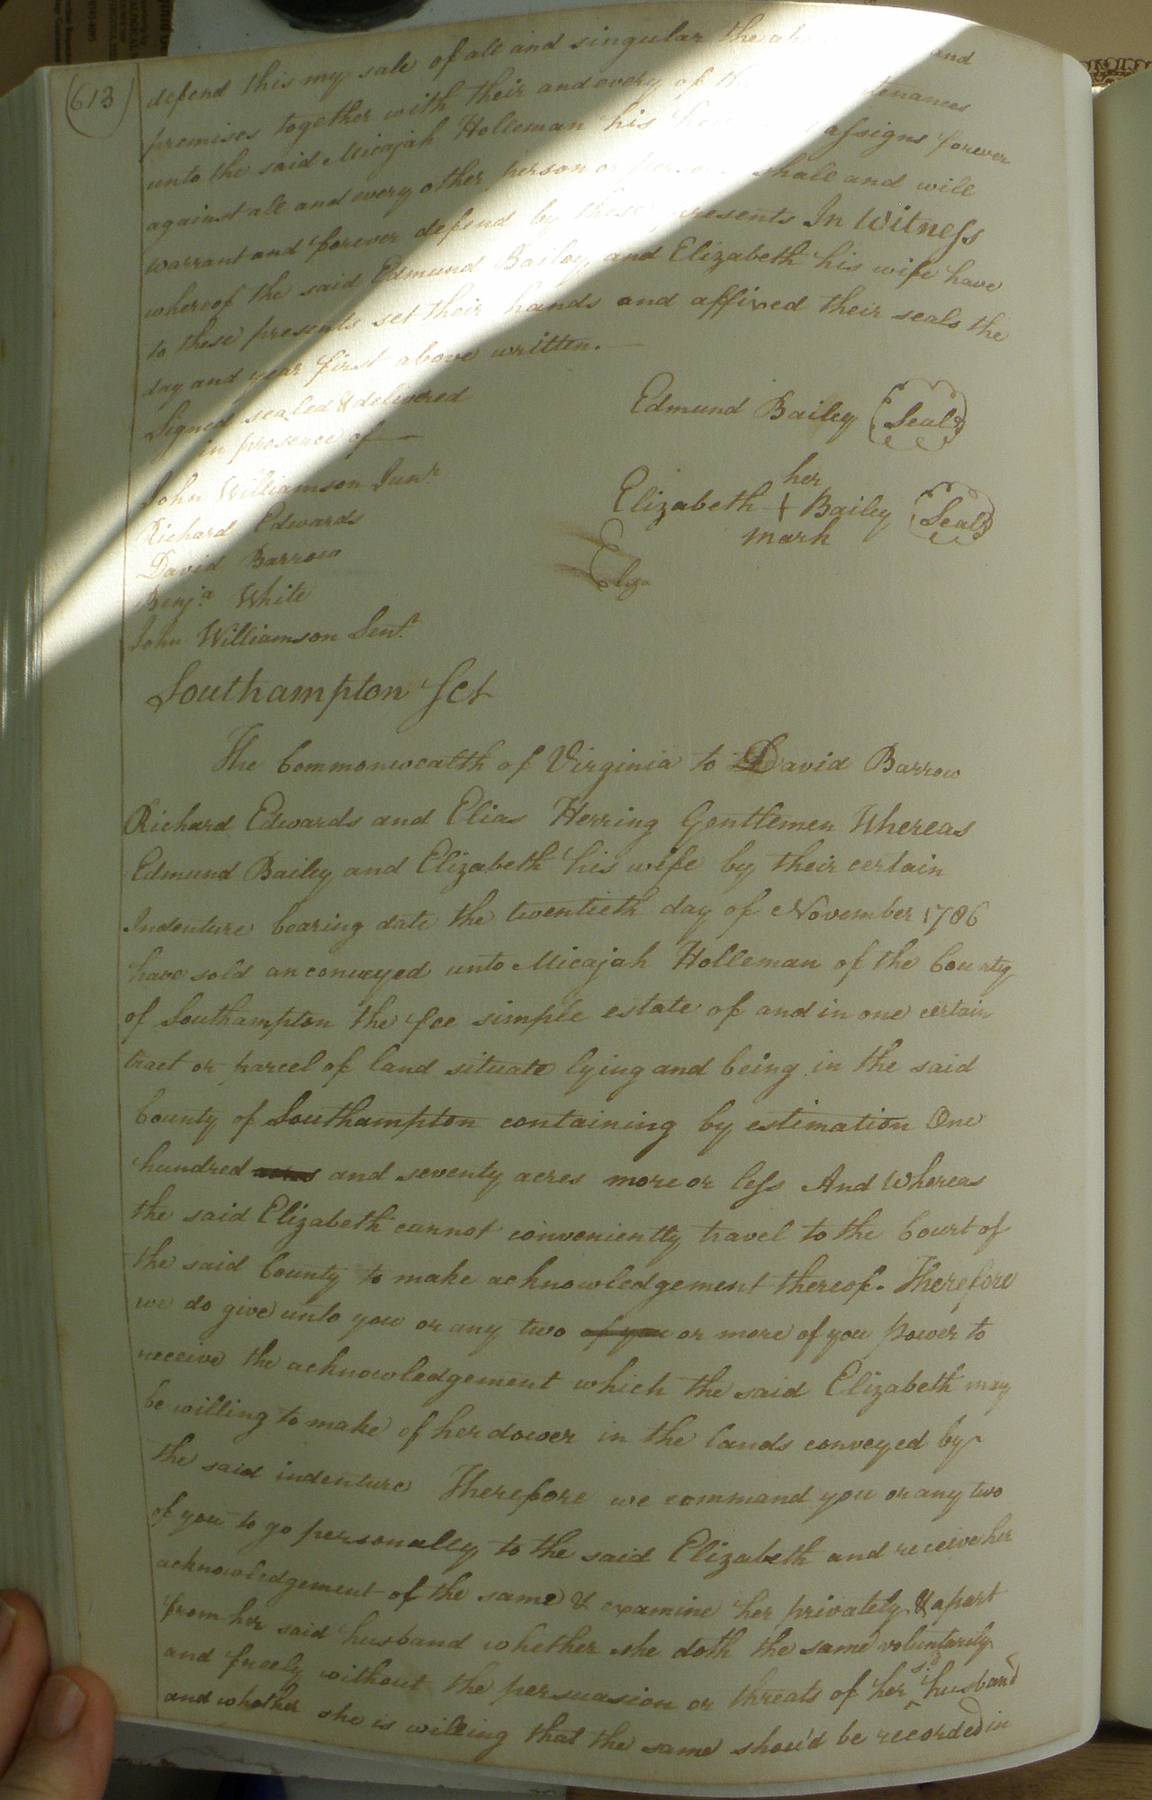 (613)
defend this my sale of all and singular the and
premises together with their and every of
unto the said Micajah Holleman his assigns forever
against all and every other person or shall and will
warrant and forever defend by these presents In Witness
whereof the said Edmund Bailey and Elizabeth his wife have
to these presents set their hands and affixed their seals the
day and year first above written.
Signed sealed & delivered
in presence of
Edmund Bailey (Seal)
John Williamson Junr
her
Elizabeth + Bailey (Seal)
mark
Richard Edwards
David Barrow
Eliza
Benja White
John Williamson Senr
Southampton Sct
The Commonwealth of Virginia to David Barrow
Richard Edwards and Elias Herring Gentlemen Whereas
Edmund Bailey and Elizabeth his wife by their certain
Indenture bearing date the twentieth day of November 1786
have sold an conveyed unto Micajah Holleman of the County
of Southampton the fee simple estate of and in one certain
tract or parcel of land situate lying and being in the said
County of Southampton containing by estimation One
hundred and seventy acres more or less And Whereas
the said Elizabeth cannot conveniently travel to the Court of
the said County to make acknowledgement thereof. Therefore
we do give unto you or any two of you or more of you power to
receive the acknowledgement which the said Elizabeth may
be willing to make of her dower in the lands conveyed by
the said indenture Therefore we command you or any two
of you to go personally to the said Elizabeth and receive her
acknowledgement of the same & examine her privately & apart
from her said husband whether she doth the same voluntarily
and freely without the persuasion or threats of her sd husband
and whether she is willing that the same shou'd be recorded in